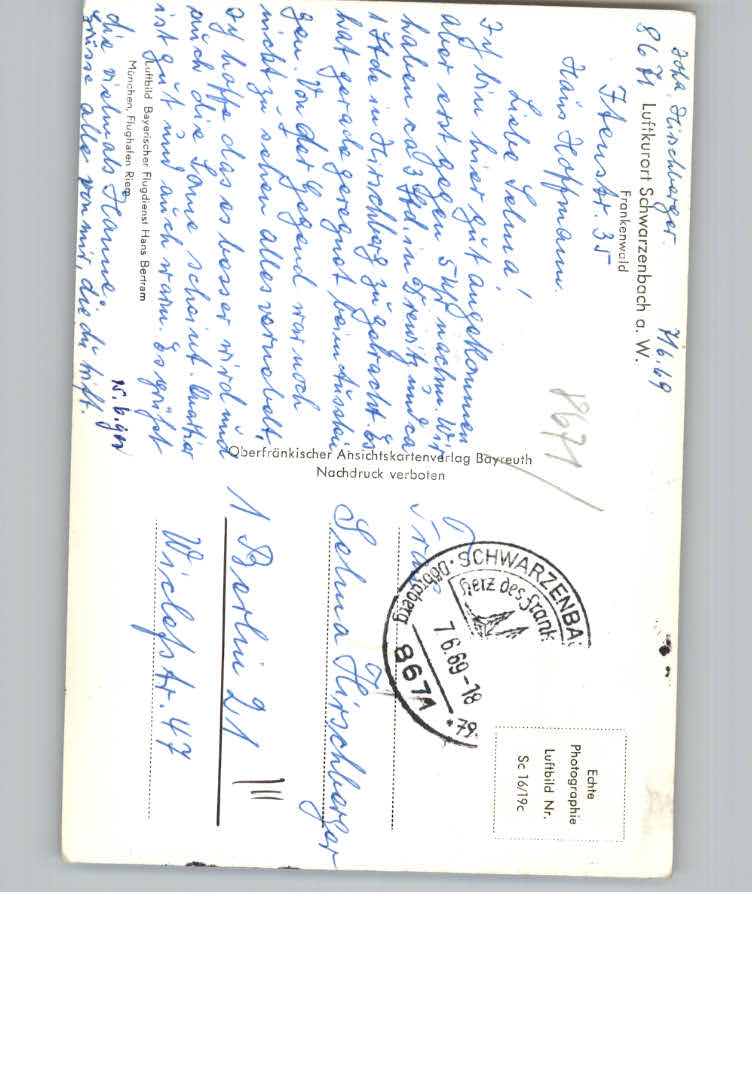 Joha. Hirschberger. 7/6.69
8671 Luftkurort Schwarzenbach a. W.
Frankenwald
Haus Hoffmann.
Liebe Selma!
Ich bin hier gut angekommen
aber erst gegen 5 Uhr nachm. Wir
haben ca 3 Std. in Drewitz und ca
1 Stde in Hirschberg zu gebracht. Es
hat gerade geregnet beim Ausstei
gen. Von der Gegend war noch
nicht zu sehen alles vernebelt.
Ich hoffe das es besser wird und
auch die Sonne scheint. Quartier
ist gut und auch warm. Es grüßt
die vielmals Hanne.
grüsse alle von mir, die du triffst.
Luftbild Bayerischer Flugdienst Hans Bertram
München, Flughafen Riem
Oberfränkischer Ansichtskartenverlag Bayreuth
Nachdruck verboten
8671
SCHWARZENBA
Herz des Frank
Döbraberg
7.6.69-18
8671
79
Echte
Photographie
Luftbild Nr.
Sc 16/19c
Frau
Selma Hirschberger
1 Berlin 21
Wiclefstr. 47